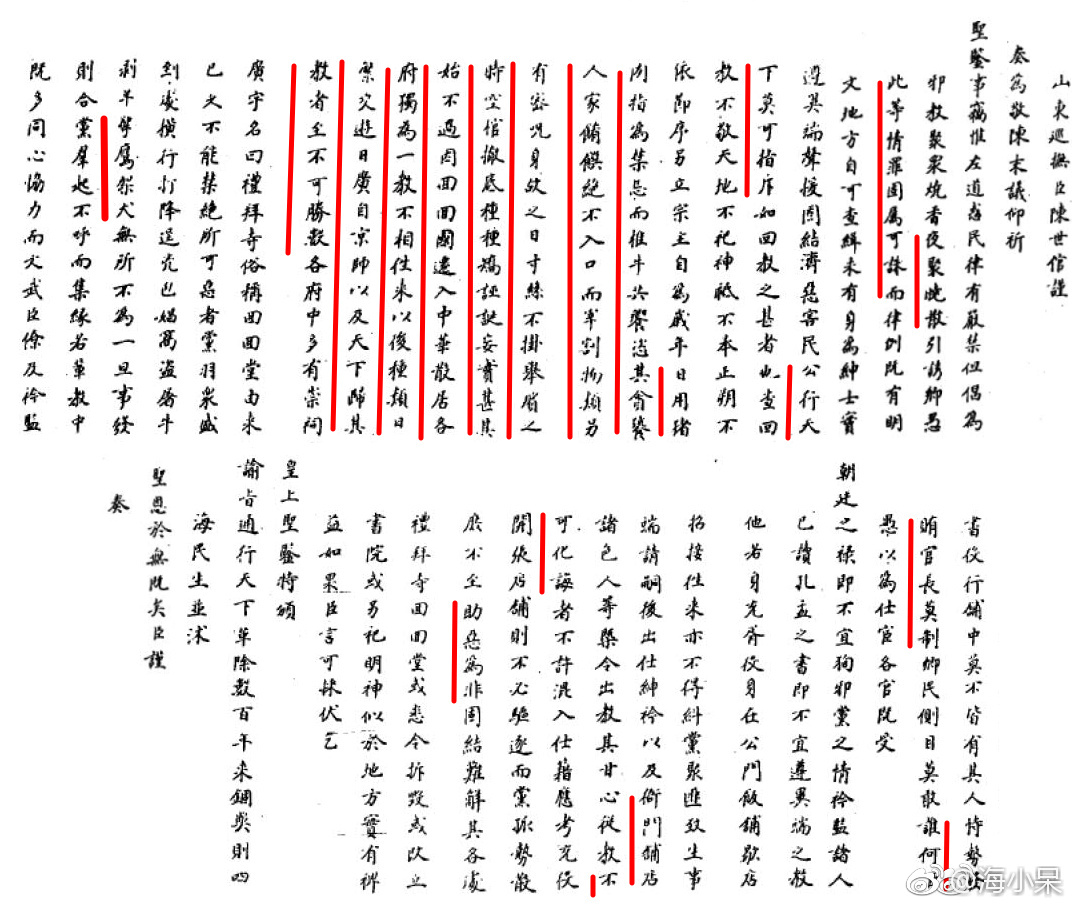 山東巡撫臣陳世倌謹
奏為敬陳末議仰祈
聖鑒事竊惟左道惑民律有嚴禁但偈為
邪教聚眾燒香夜聚曉散引誘鄉愚
此等情罪固屬可誅而律例既有明
文地方自可查緝未有身為紳士實
遵異端聲援固結濟惡害民公行天
下莫可指斥如回教之甚者也查回
教不敬天地不祀神祇不本正朔不
依節序另立宗主自為歲年日用豬
肉指為禁忌而椎牛共饗恣其貪饕
人家餚饌絕不入口而羊割物類另
有密咒身歿之日寸絲不掛舉屍之
時空棺撤底種種矯誣誕妄實甚其
始不過因回回國遷入中華散居各
府獨為一教不相往來以後種類日
繁交遊日廣自京師以及天下歸其
教者至不可勝數各府中多有崇祠
廣宇名曰禮拜寺俗稱回回堂由來
已久不能禁絕所可惡者黨羽眾盛
到處橫行打降逞兇包娼窩盜屠牛
剥羊擧鷹架犬無所不為一旦事發
則合黨羣起不呼而集緣若輩教中
既多同心協力而文武臣僚及衿監
書役行舖中莫不皆有其人恃勢
藐官長莫制鄉民側目莫敢誰何
愚以為仕宦各官既受
朝廷之祿即不宜狥邪黨之情衿監諸人
已讀孔孟之書即不宜遵異端之教
他若身充胥役身在公門飯舖歇店
招接往來亦不得糾黨聚匪致生事
端請嗣後出仕紳衿以及衙門舖店
諸色人等槩令出教其甘心從教不
可化誨者不許混入仕籍應考充役
開張店舖則不必驅逐而黨孤勢散
庶不至助惡為非固結難解其各處
禮拜寺回回堂或悉令拆毀或改立
書院或另祀明神似於地方實有裨
益如果臣言可採伏乞
皇上聖鑒特頒
諭旨通行天下革除數百年來錮獘則四
海民生並沐
聖恩於無既矣臣謹
奏
@海小呆